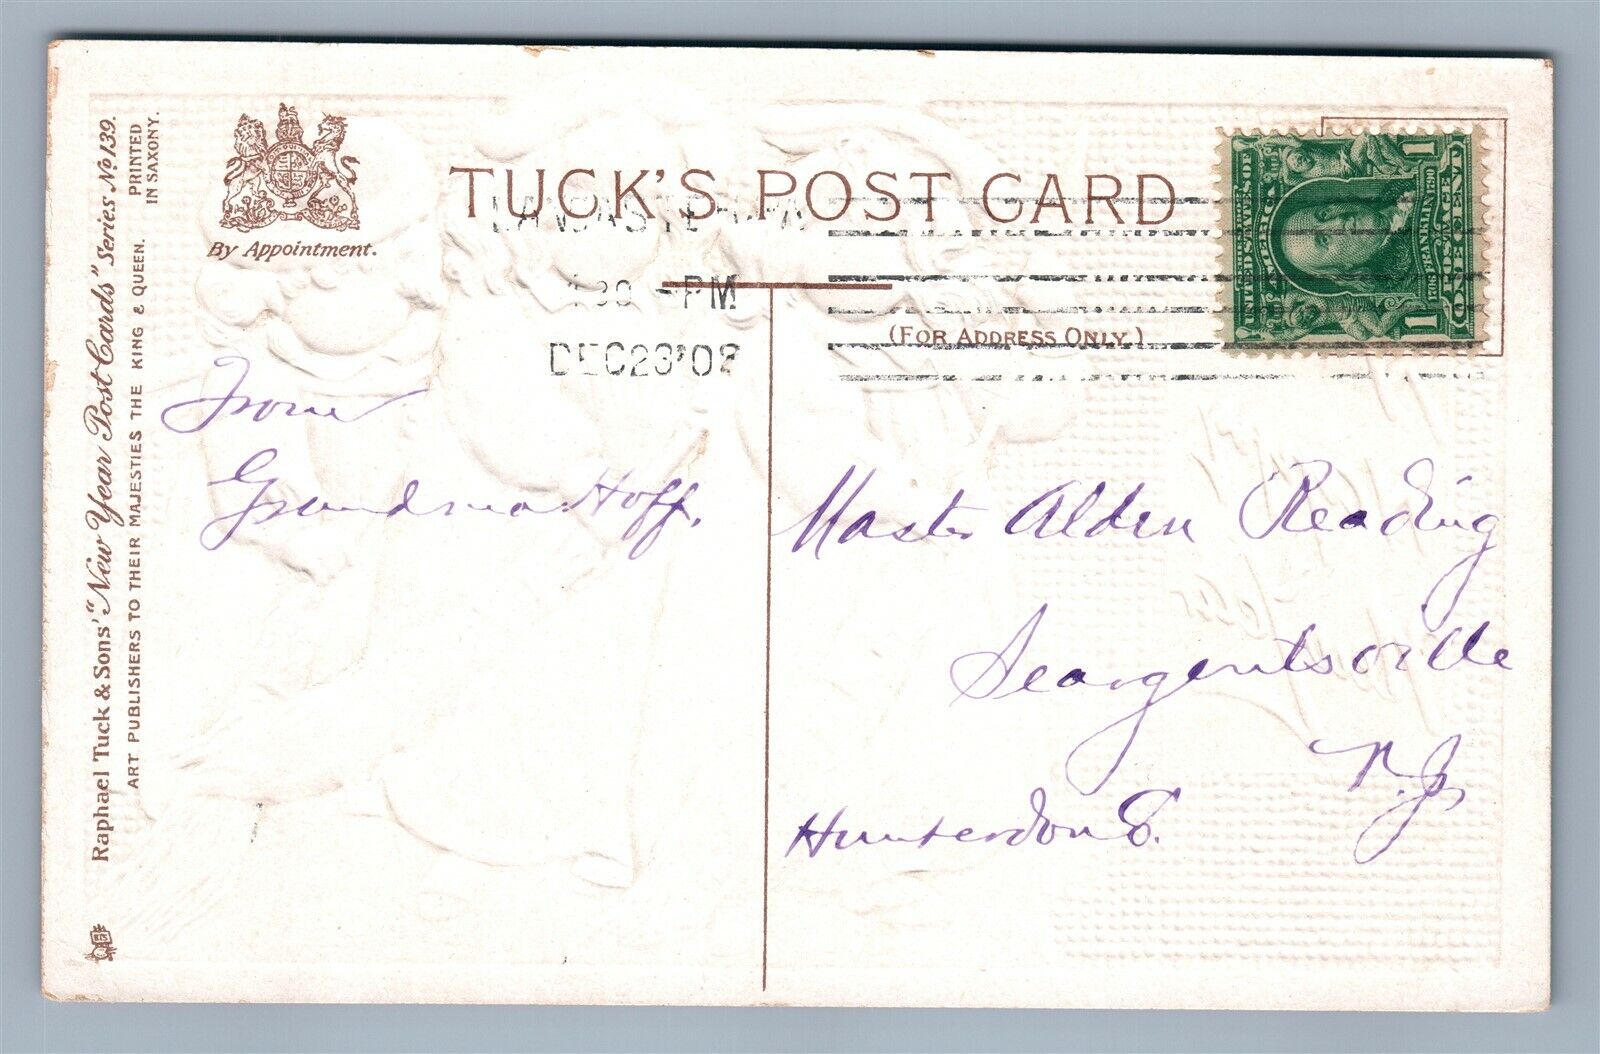 Raphael Tuck & Sons' "New Year Post Cards" Series No 139.
ART PUBLISHERS TO THEIR MAJESTIES THE KING & QUEEN.
PRINTED
IN SAXONY.
By Appointment.
TUCK'S POST CARD
LANCASTER PA
30 PM
DEC 23 '08
(FOR ADDRESS ONLY.)
1 1
UNITED STATES OF AMERICA
FRANKLIN
1706 1790
POSTAGE
ONE CENT
From
Grandma Hoff.
Master Alden Reading
Seargentsville
N.J.
Hunterdon Co.